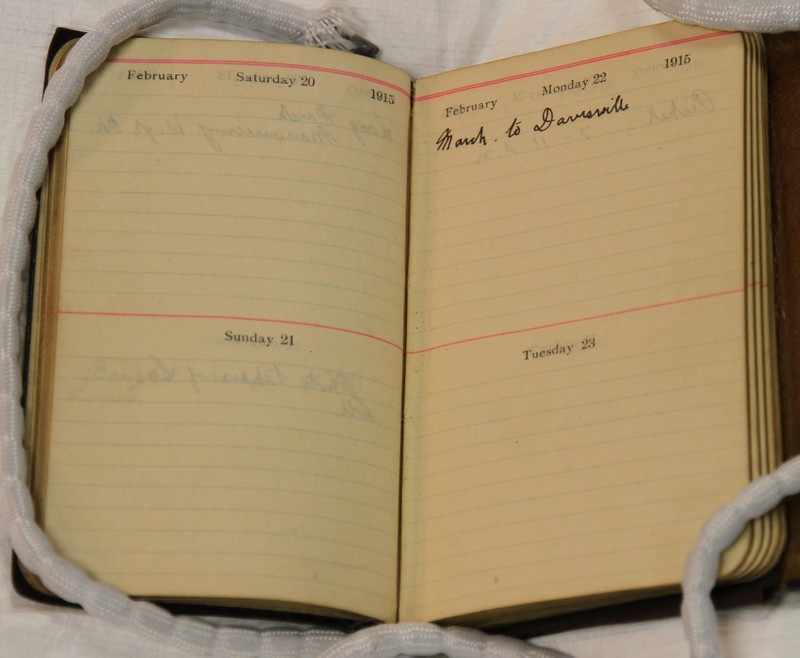 February Saturday 20 1915
Sunday 21
February Monday 22 1915
March. to Daviesville
Tuesday 23